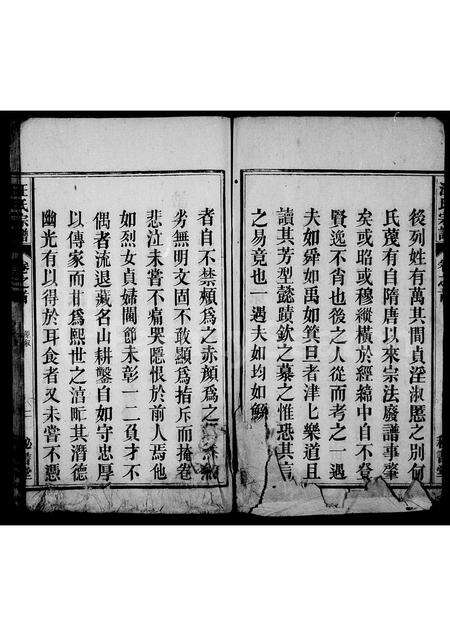 後列姓有萬其間貞淫淑慝之別何
氏蔑有自隋唐以來宗法廢譜事肇
矣或昭或穆縱橫於經緯中自不嘗
賢逸不肖也後之人從而考之一遇
夫如舜如禹如箕旦者津津樂道且
讀其芳型懿蹟欽之慕之惟恐其言
之易竟也一遇夫如均如鯀
者自不禁頰為之赤顏為之
劣無明文固不敢顯為指斥而掩卷
悲泣未嘗不痛哭隱恨於前人焉他
如烈女貞婦閫節未彰一二負才不
偶者流退藏名山耕鑿自如守忠厚
以傳家而非為熙世之
幽光有以得於耳食者又未嘗不憑
汪氏宗譜